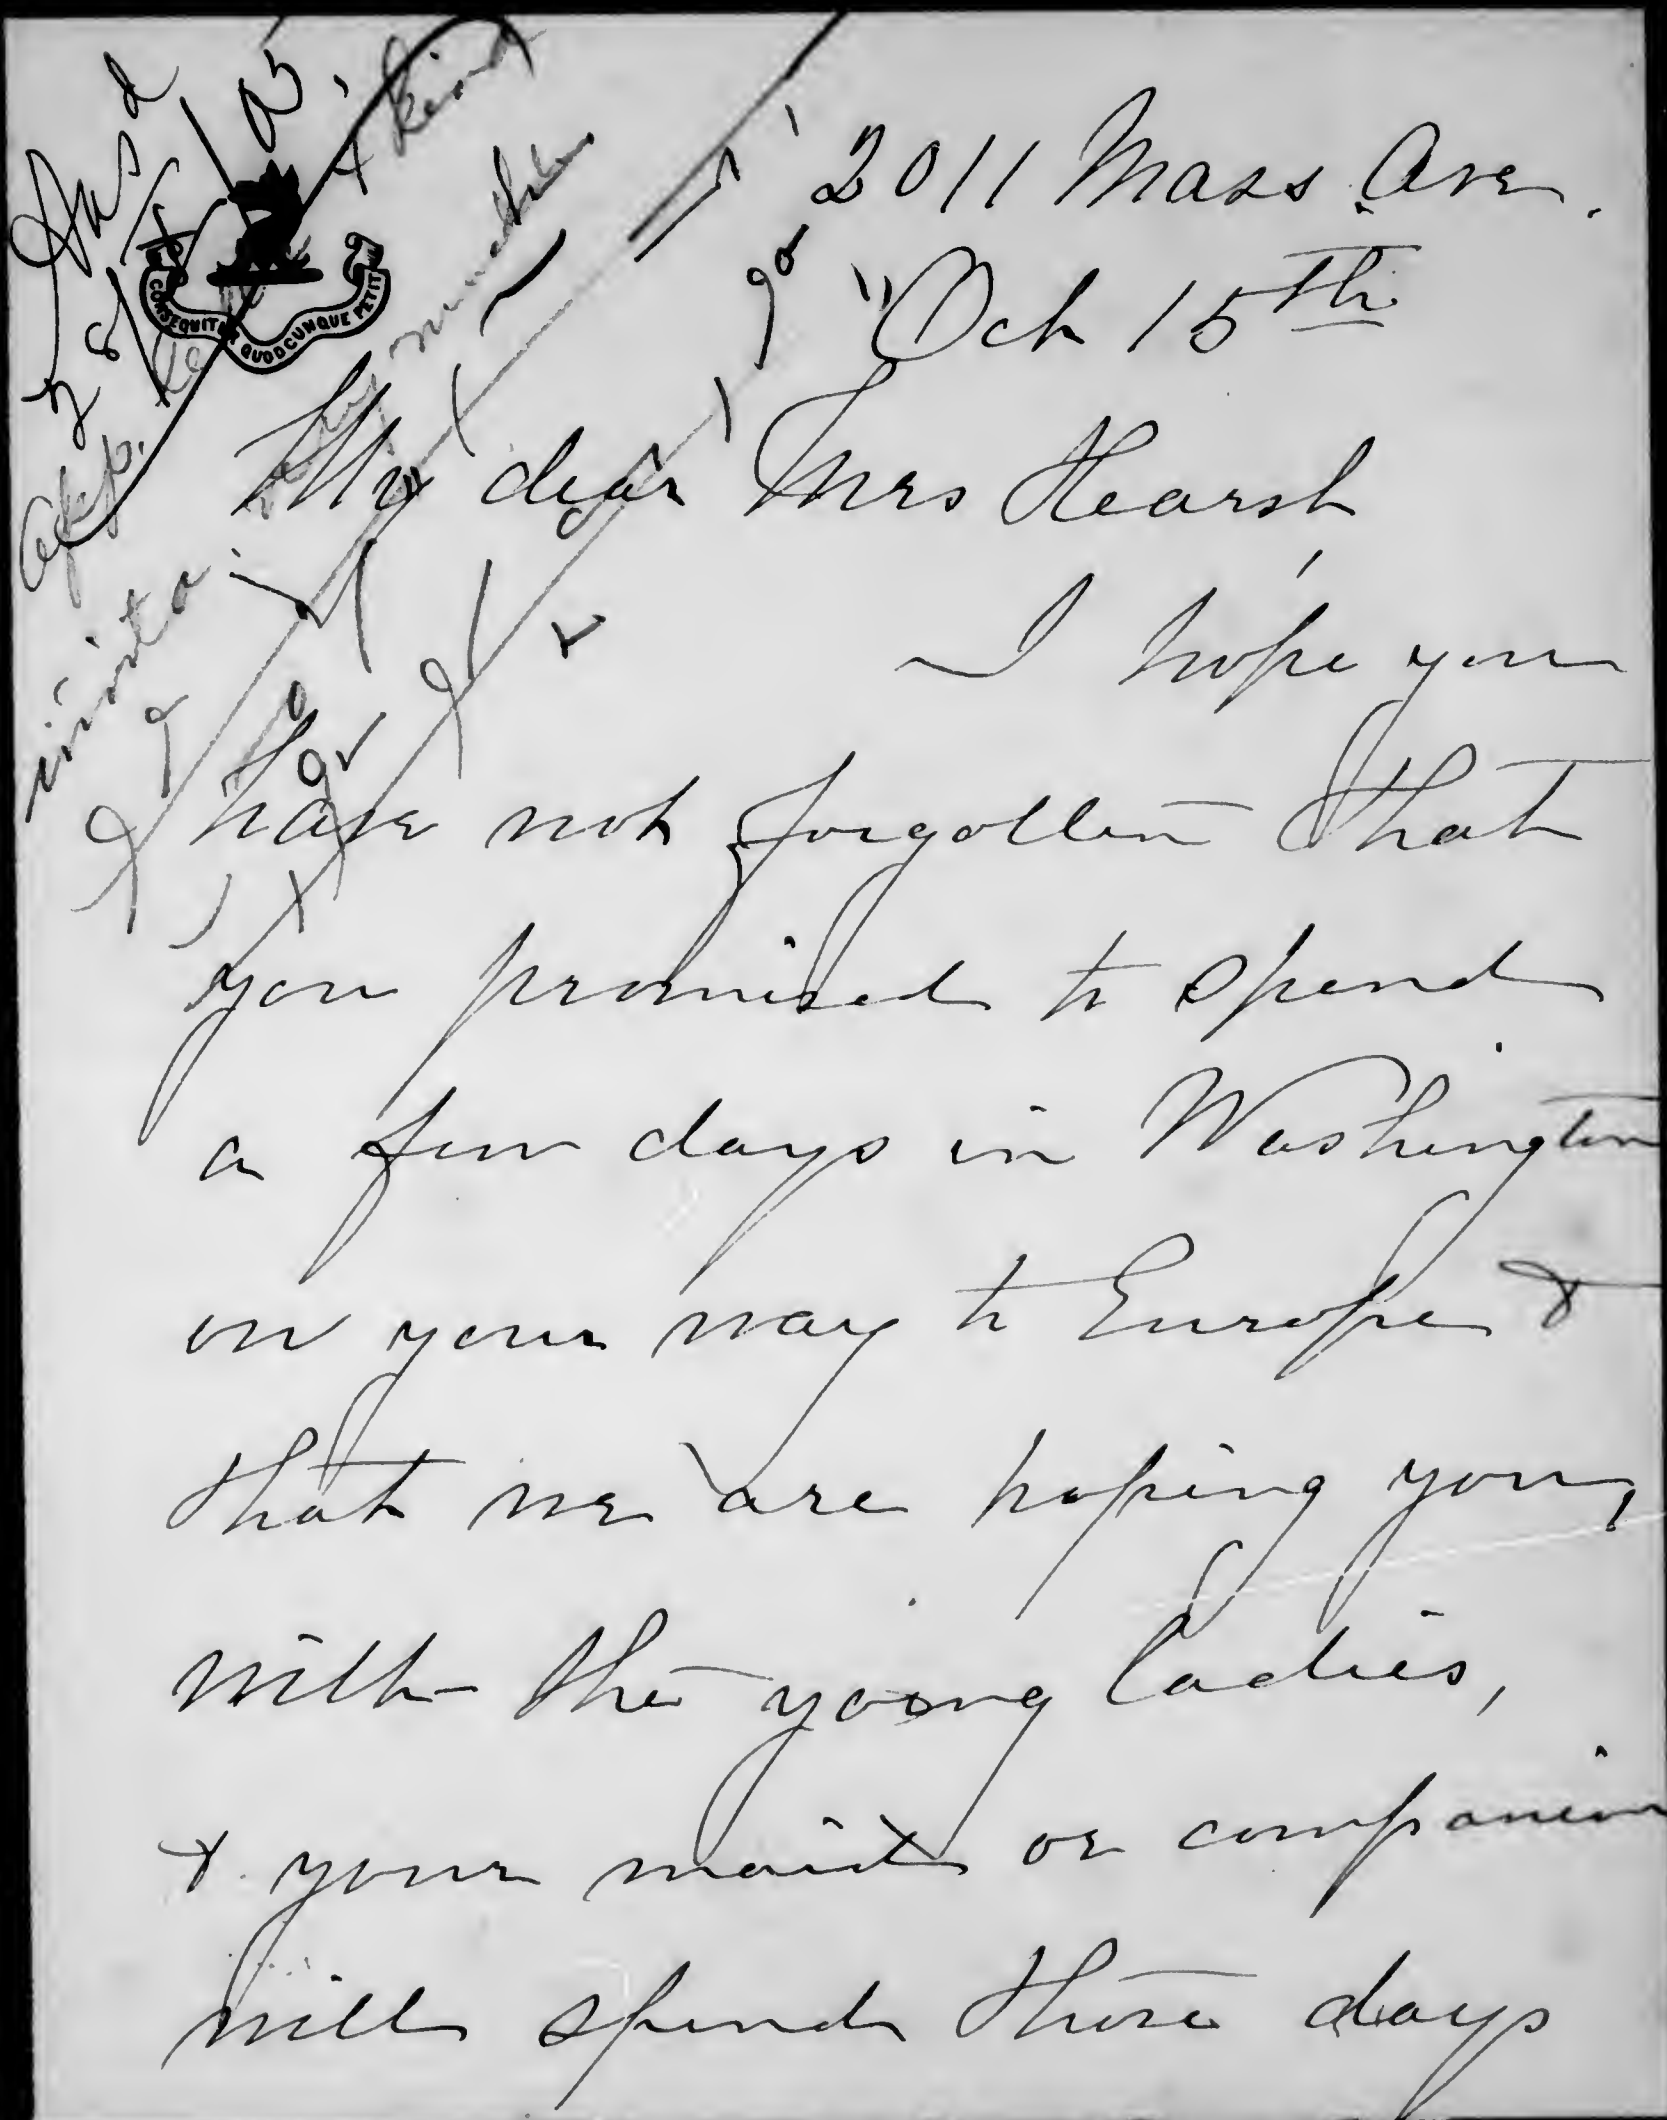 CONSEQUITUR QUODCUNQUE PETIT
2011 Mass. Ave.
Oct 15th
My dear Mrs Hearst
I hope you
have not forgotten that
you promised to spend
a few days in Washington
on your way to Europe &
that we are hoping you,
with the young ladies,
& your maid or companion
will spend those days
Ansd
app.
& kind
very much
invita